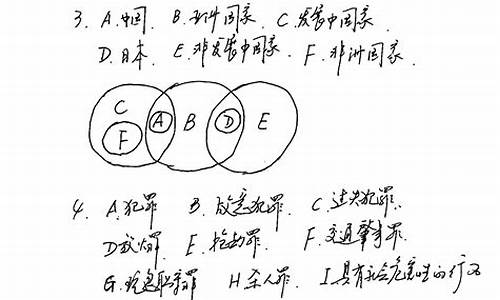 3. A.中国 B.亚洲国家 C.发展中国家
D.日本 E.非发展中国家 F.非洲国家
C A B D E
F
4. A.犯罪 B.故意犯罪 C.过失犯罪
D.放火罪 E.抢劫罪 F.交通肇事罪
G.玩忽职守罪 H 杀人罪 I 具有社会危害性的行为